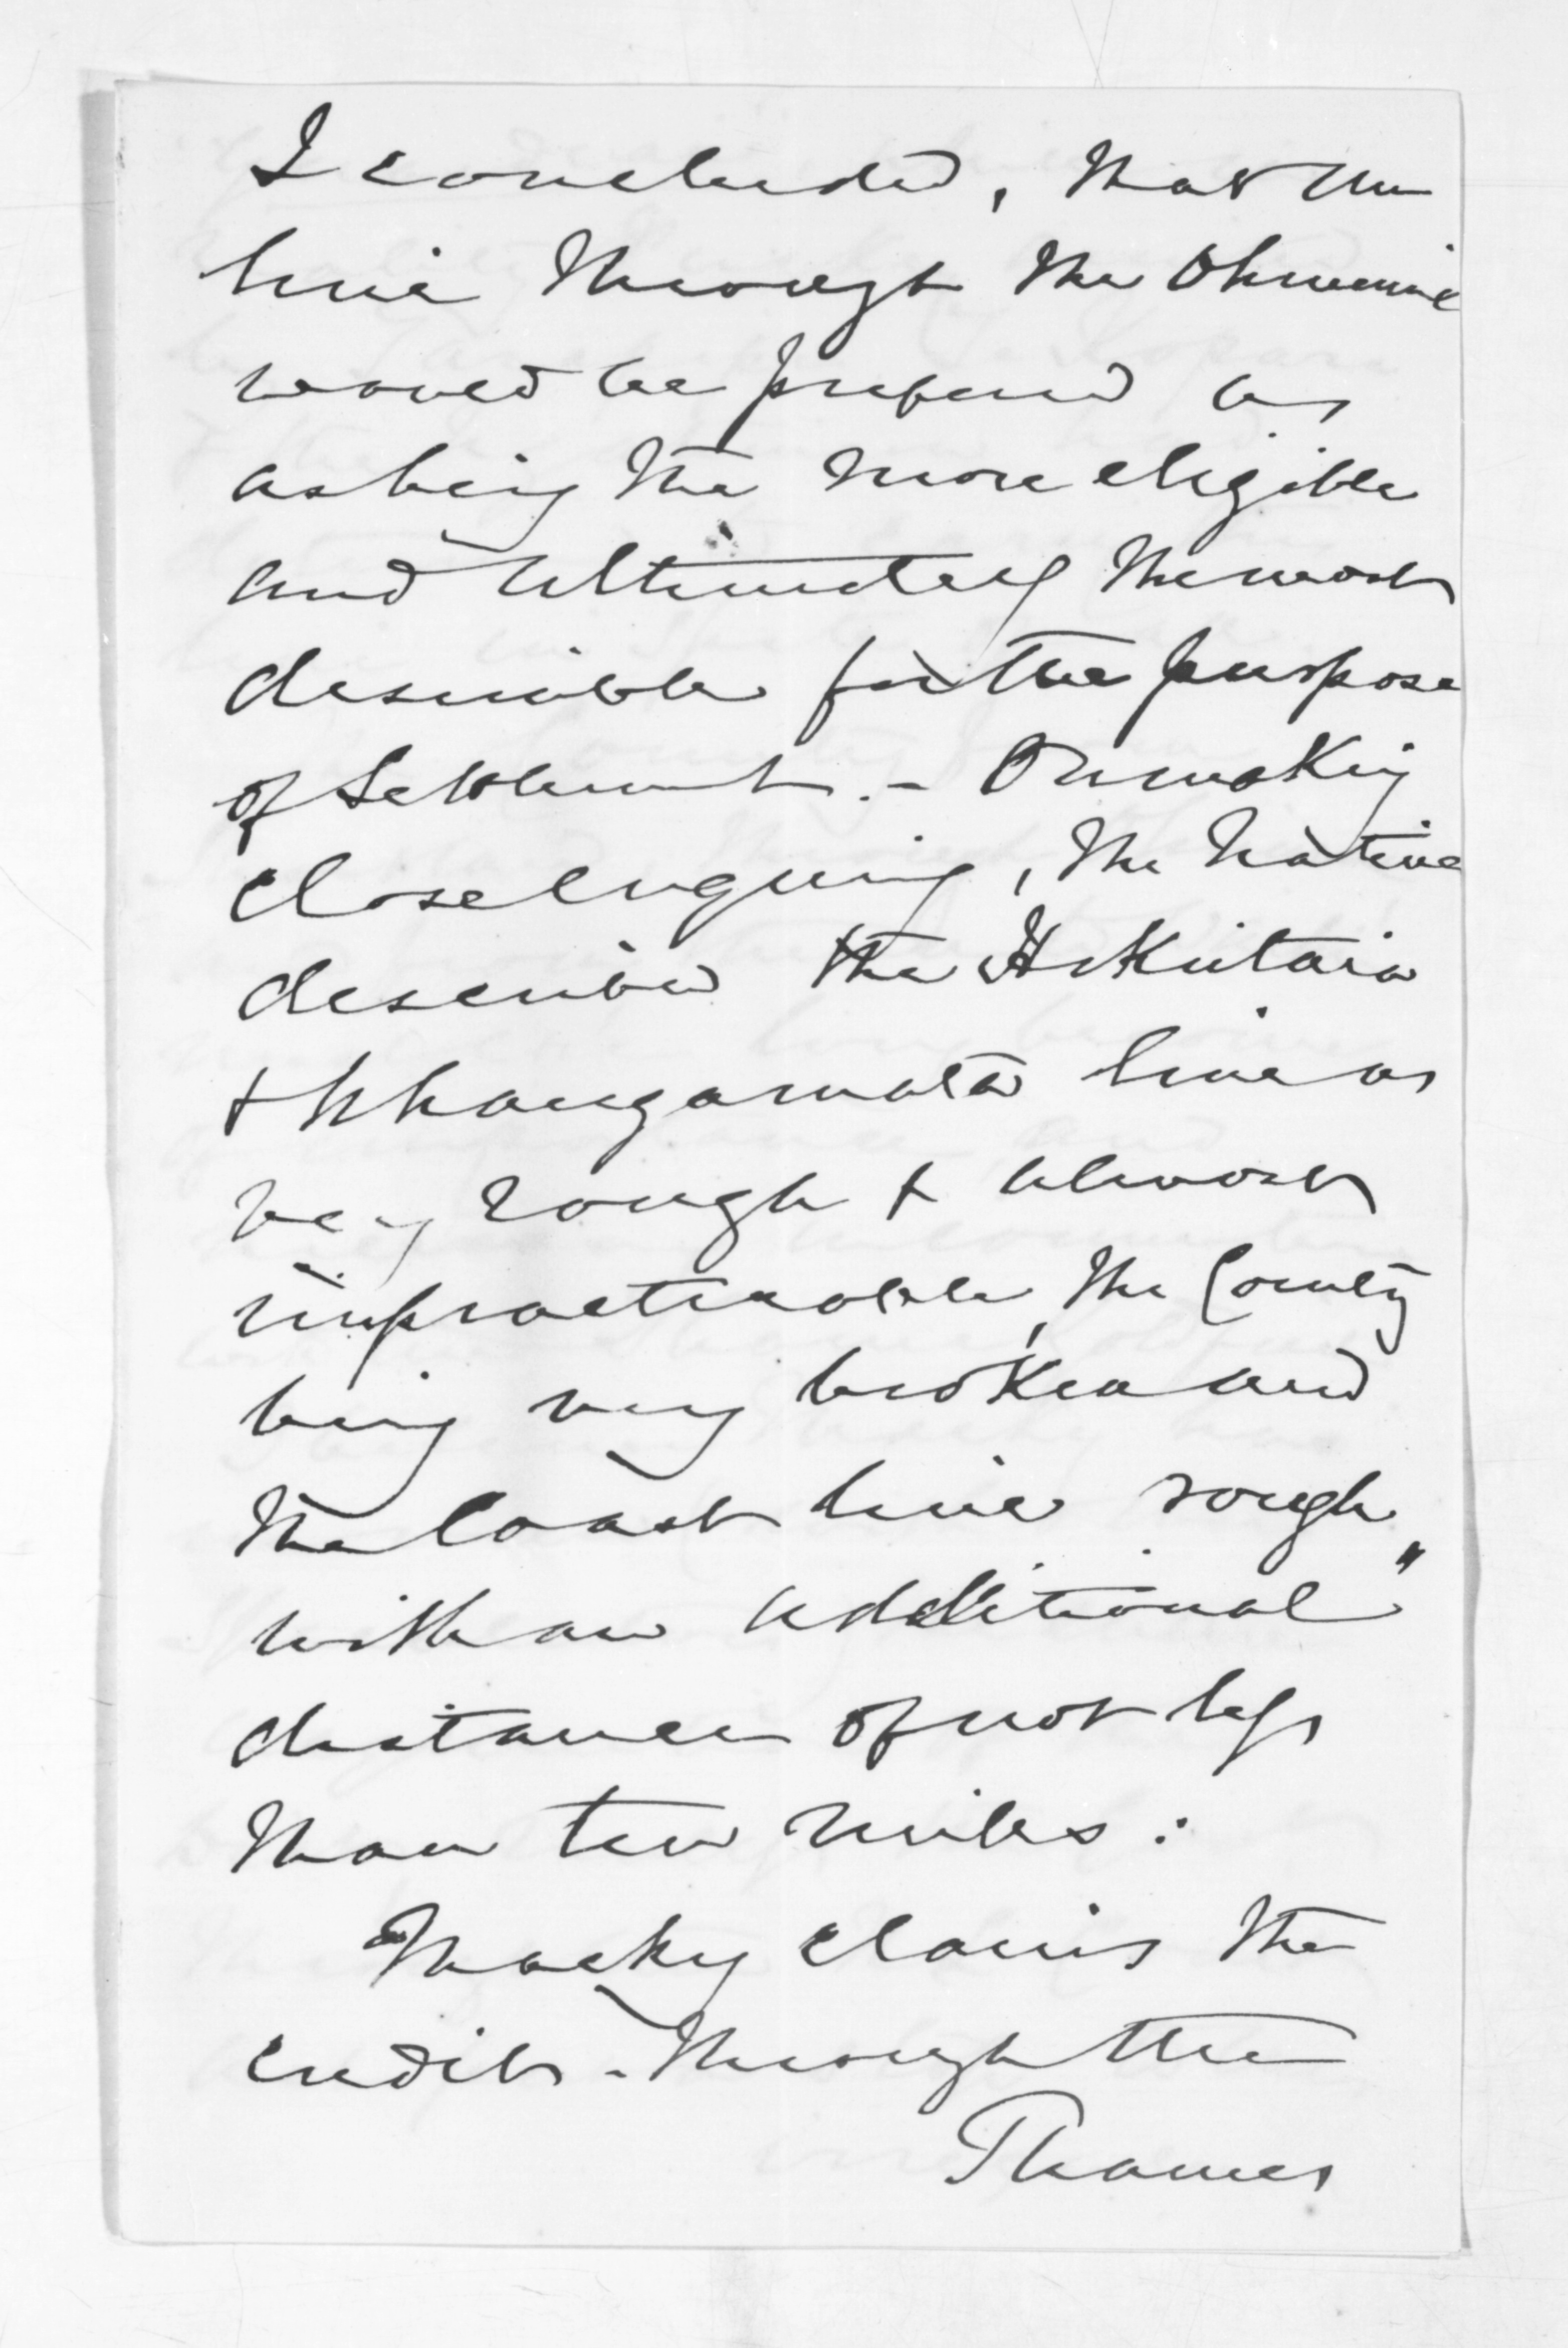 I concluded, that the
line through the Ohinemuri
would be prefered as
as being the more eligible
and ultimately the most
desirable for the purpose
of Settlement. - On making
close enquiry, the Native
described the Hikutaia
& Whangamata line as
very rough & almost
impracticable, the County
being very broken and
the Coast line rough,
with an additional "
distance of not less
than ten miles :
Macky claims the
credit - through the
Thames